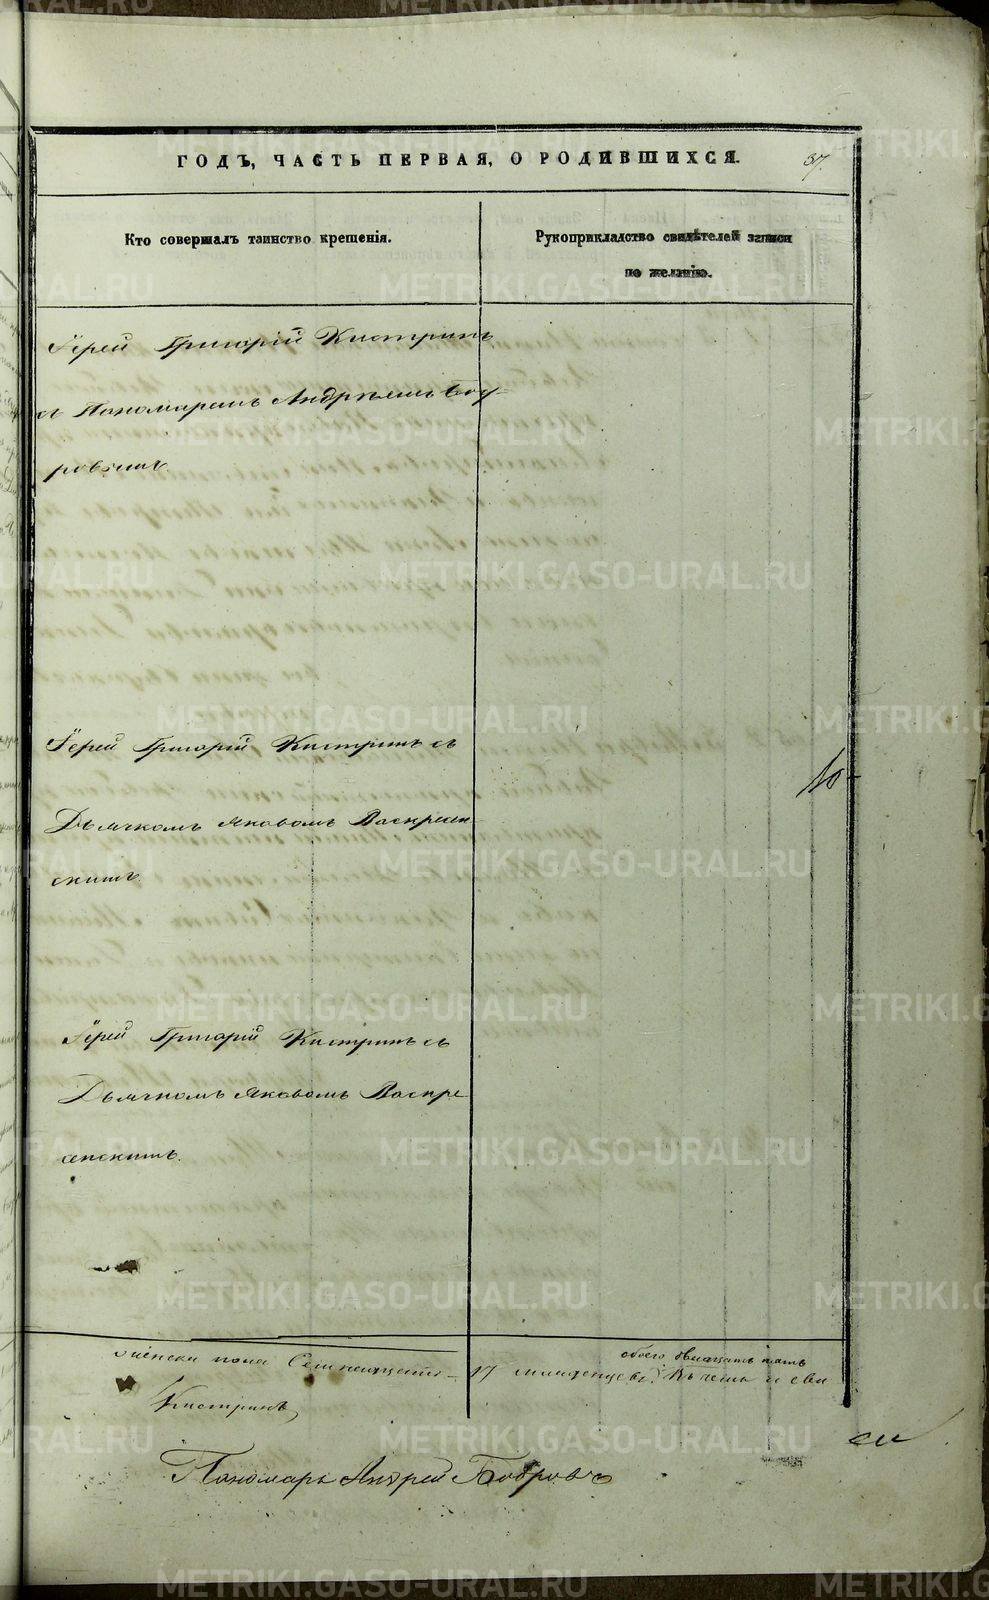 ГОДЪ, ЧАСТЬ ПЕРВАЯ, О РОДИВШИХСЯ. 37.
Кто совершалъ таинство крещенія.
Рукоприкладство свидѣтелей записи
по желанію.
Іерей Григорій Кистринъ
съ Пономаремъ Андреемъ Боб-
ровымъ
Іерей Григорій Кистринъ съ
Дьячкомъ Яковомъ Воскресен
скимъ
Іерей Григорій Кистринъ съ
Дьячкомъ Яковомъ Воскре
сенскимъ.
женска пола Семнадцать 17
обоего двадцать пять
младенцевъ. Въ чемъ и сви
Кистринъ
Пономарь Андрей Бобровъ
METRIKI.GASO-URAL.RU